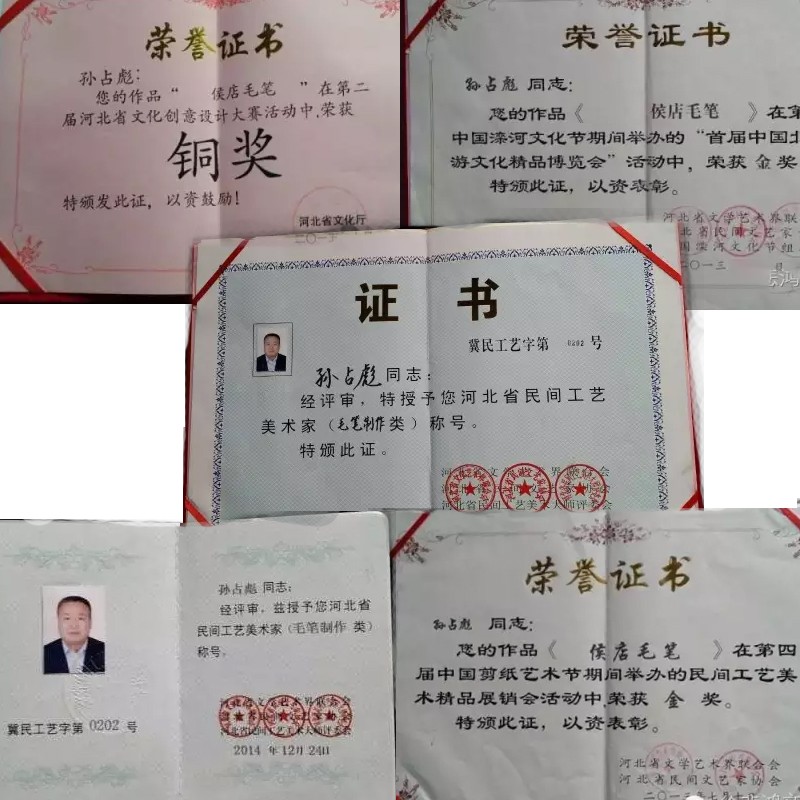 荣誉证书
孙占彪：
您的作品“ 侯店毛笔 ”在第二
届河北省文化创意设计大赛活动中,荣获
铜奖
特颁发此证，以资鼓励！
河北省文化厅
荣誉证书
孙占彪 同志：
您的作品《 侯店毛笔 》在第
中国滦河文化节期间举办的“首届中国北
游文化精品博览会”活动中，荣获 金奖
特颁此证，以资表彰。
河北省文学艺术界联
省民间文艺家
国滦河文化节组
二〇一三
证 书
冀民工艺字第 0202 号
孙占彪 同志：
经评审，特授予您河北省民间工艺
美术家（毛笔制作类）称号。
特颁此证。
河北省民间工艺美术大师评委会
孙占彪 同志：
经评审，兹授予您河北省
民间工艺美术家（毛笔制作 类）
称号。
河北省民间工艺美术大师评委会
2014 年 12月 24日
冀民工艺字第 0202 号
荣誉证书
孙占彪 同志：
您的作品《 侯店毛笔 》在第四
届中国剪纸艺术节期间举办的民间工艺美
术精品展销会活动中,荣获 金 奖。
特颁此证，以资表彰。
河北省文学艺术界联合会
河北省民间文艺家协会